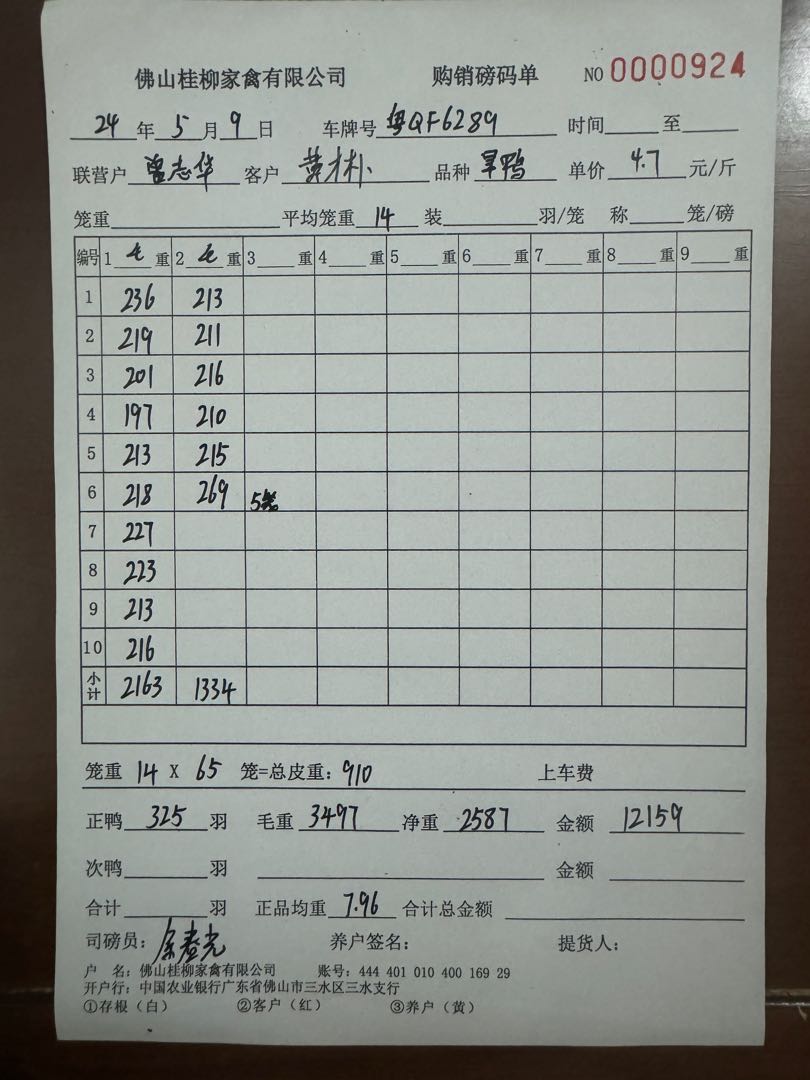 佛山桂柳家禽有限公司 购销磅码单 NO 0000924
24 年 5 月 9 日 车牌号 粤QF6289 时间 至
联营户 曾志华 客户 黄才朴 品种 旱鸭 单价 4.7 元/斤
笼重 平均笼重 14 装 羽/笼 称 笼/磅
编号 1 毛 重 2 毛 重 3 重 4 重 5 重 6 重 7 重 8 重 9 重
1 236 213
2 219 211
3 201 216
4 197 210
5 213 215
6 218 269 5笼
7 227
8 223
9 213
10 216
小计 2163 1334
笼重 14 X 65 笼=总皮重: 910 上车费
正鸭 325 羽 毛重 3497 净重 2587 金额 12159
次鸭 羽 金额
合计 羽 正品均重 7.96 合计总金额
司磅员: 养户签名: 提货人:
户 名: 佛山桂柳家禽有限公司 账号: 444 401 010 400 169 29
开户行: 中国农业银行广东省佛山市三水区三水支行
①存根(白) ②客户(红) ③养户(黄)